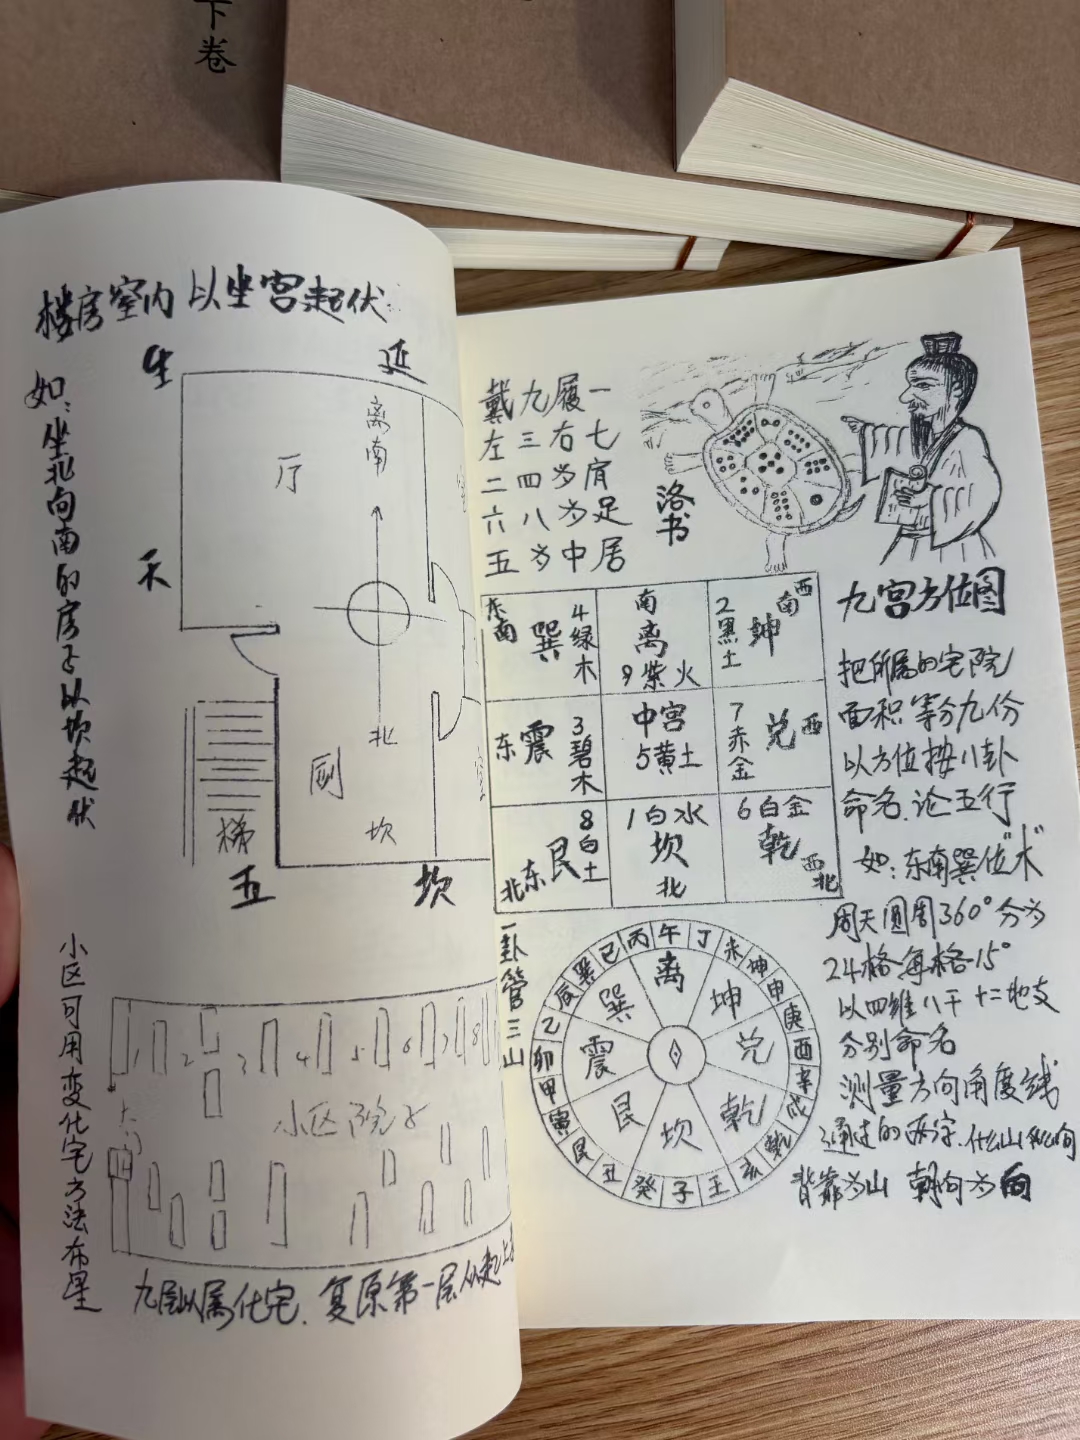 下卷
楼房室内以坐宫起伏
如:坐北向南的房子以坎起伏
生
延
离
南
厅
天
北
厨
坎
梯
五
坎
小区可用变化宅方法布星
1 2 3 4 5 6 7 8
大门
小区院子
九层以属化宅.复原第一层从起
戴九履一
左三右七
二四为肩
六八为足
五为中居
洛书
九宫方位图
东南 巽 4绿木
南 离 9紫火
2黑土 坤 西南
东 震 3碧木
中宫 5黄土
7赤金 兑 西
东北 艮 8白土
1白水 坎 北
6白金 乾 西北
把所属的宅院
面积等分九份
以方位按八卦
命名.论五行
如:东南巽位"木"
周天圆周360°分为
24格每格15°
以四维八干十二地支
分别命名
测量方向角度线
通过的两字.什么山什么向
背靠为山 朝向为向
一卦管三山
午丁未坤申庚酉辛戌乾亥壬子癸丑艮寅甲卯乙辰巽巳丙
离坤兑乾坎艮震巽